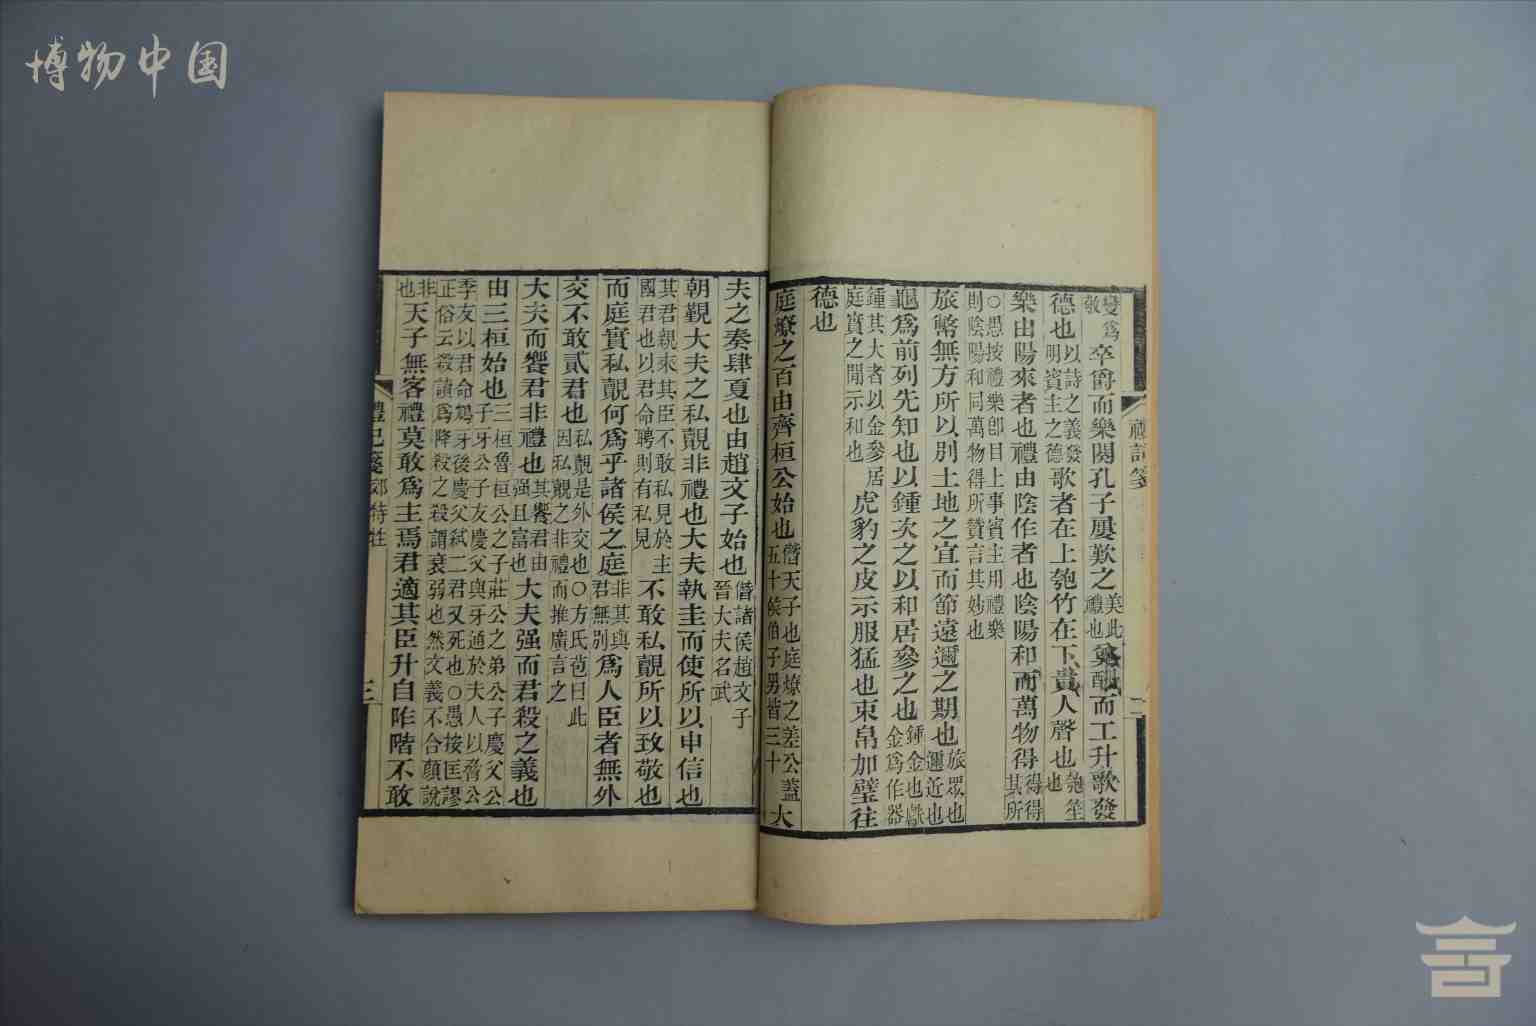 博物中国
禮記箋
二
變爲
敬
卒爵而樂闋孔子屢歎之
美此
禮也
奠酬而工升歌發
德也
以詩之義發
明賓主之德
歌者在上匏竹在下貴人聲也
匏笙
也
樂由陽來者也禮由陰作者也陰陽和而萬物得
得得
其所
○愚按禮樂卽目上事賓主用禮樂
則陰陽和同萬物得所贊言其妙也
旅幣無方所以別土地之宜而節遠邇之期也
旅眾也
邇近也
龜爲前列先知也以鍾次之以和居參之也
鍾金也獻
金爲作器
鍾其大者以金參居
庭實之閒示和也
虎豹之皮示服猛也束帛加璧往
德也
庭燎之百由齊桓公始也
僭天子也庭燎之差公蓋
五十侯伯子男皆三十
大
夫之奏肆夏也由趙文子始也
僭諸侯趙文子
晉大夫名武
朝覲大夫之私覿非禮也大夫執圭而使所以申信也
其君親來其臣不敢私見於主
國君也以君命聘則有私見
不敢私覿所以致敬也
而庭實私覿何爲乎諸侯之庭
非其與
君無別
爲人臣者無外
交不敢貳君也
私覿是外交也○方氏苞曰此
因私覿之非禮而推廣言之
大夫而饗君非禮也
其饗君由
强且富也
大夫强而君殺之義也
由三桓始也
三桓魯桓公之子莊公之弟公子慶父公
子牙公子友慶父與牙通於夫人以脅公
季友以君命鴆牙後慶父弒二君又死也○愚按匡謬
正俗云殺讀爲降殺之殺謂衰弱也然文義不合顏說
非
也
天子無客禮莫敢爲主焉君適其臣升自阼階不敢
禮記箋 郊特牲
三